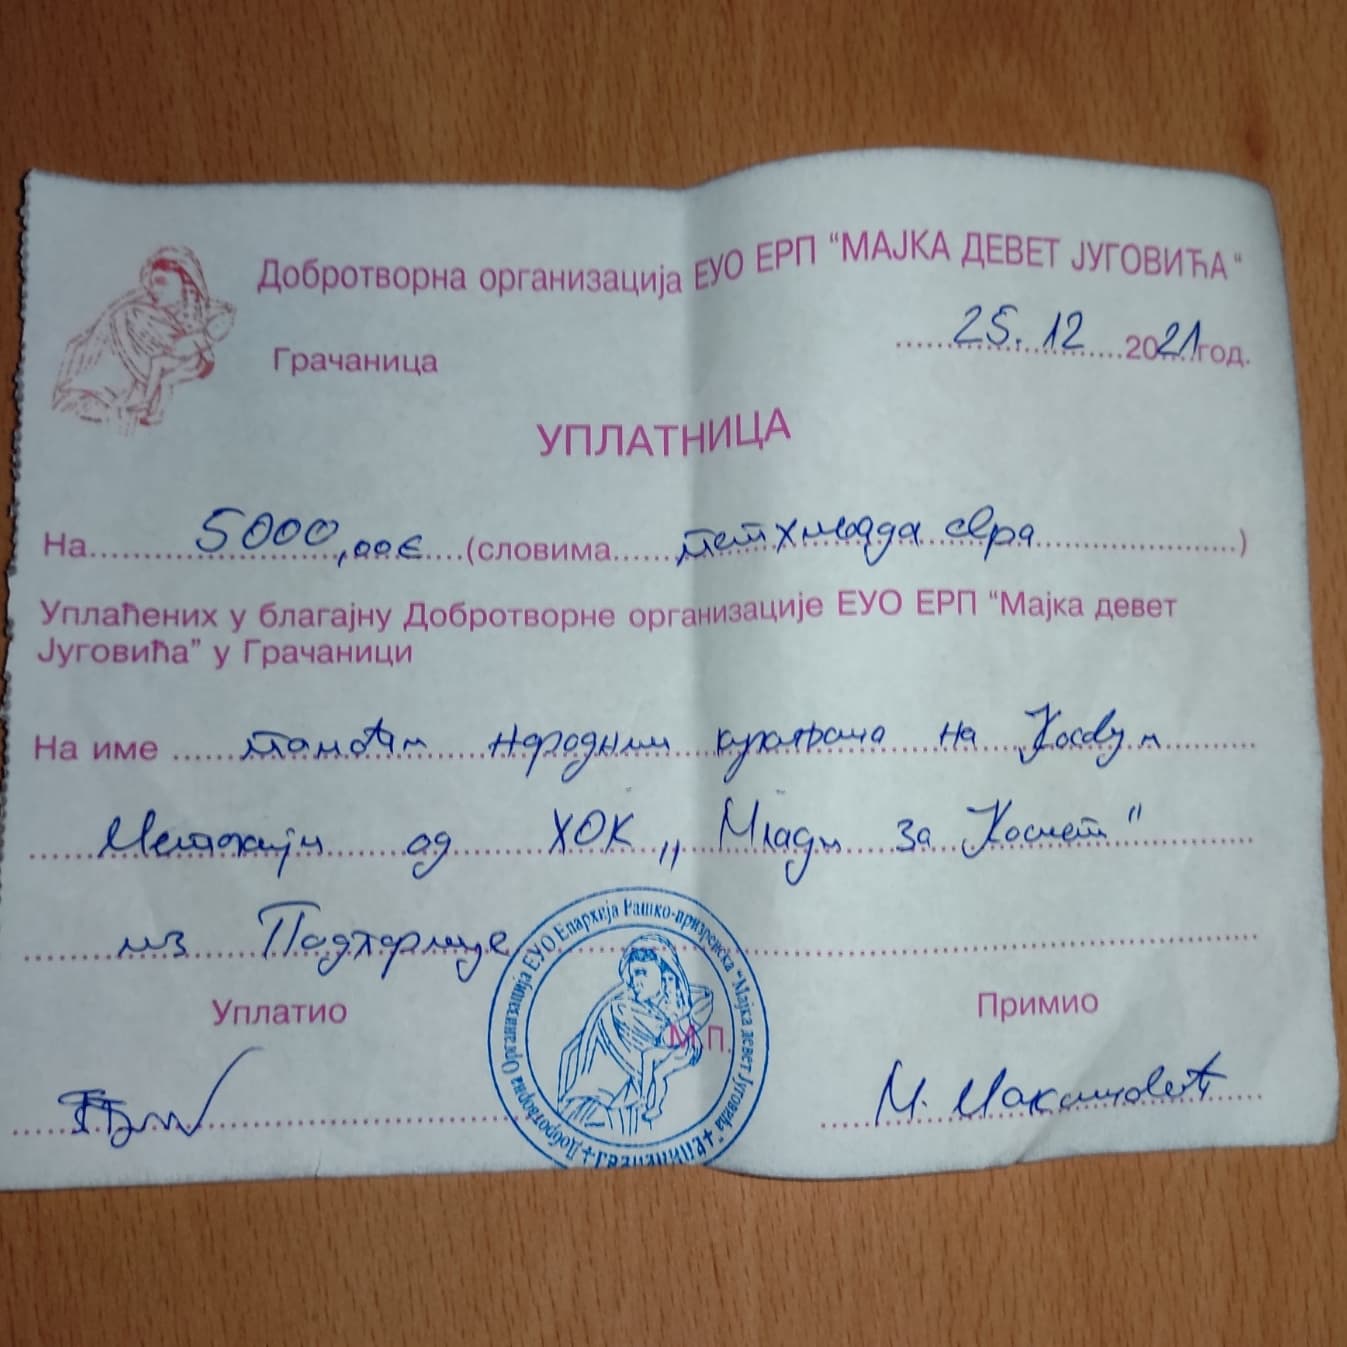 Добротворна организација ЕУО ЕРП “МАЈКА ДЕВЕТ ЈУГОВИЋА“
25. 12 2021 год.
Грачаница
УПЛАТНИЦА
На 5000,00€ (словима петхиљада евра)
Уплаћених у благајну Добротворне организације ЕУО ЕРП “Мајка девет
Југовића” у Грачаници
На име помоћи народним кухињама на Косову и
Метохији од ХОК „Млади за Космет"
из Подгорице
Уплатио
Примио
М.П.
Добротворна Организација ЕУО Епархија Рашко-призренска "Мајка девет Југовића" + ГРАЧАНИЦА +
М.